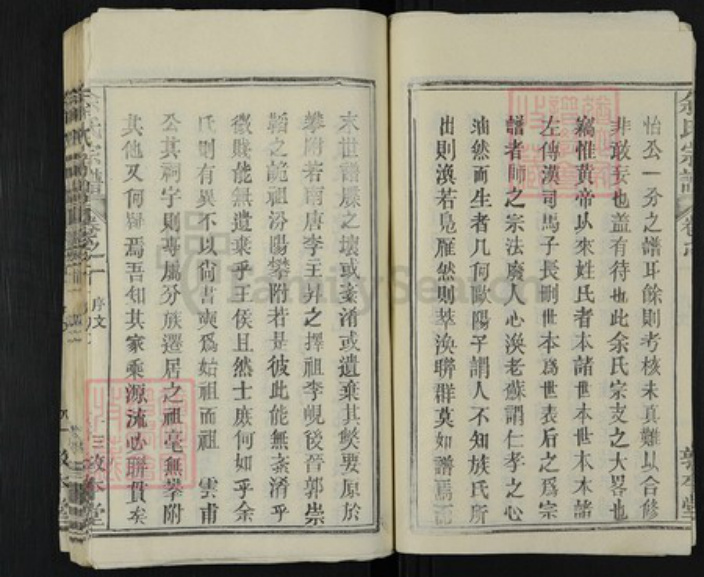 怡公一分之譜耳餘則考核未真難以合修
非敢妄也蓋有待也此余氏宗支之大畧也
竊惟黃帝以來姓氏者本諸世本世本本諸
左傳漢司馬子長刪世本爲世表后之爲宗
譜者師之宗法廢人心渙老蘇謂仁孝之心
油然而生者几何歐陽子謂人不知族氏所
出則渙若鳬雁然則萃渙聯群莫如譜焉而
余氏宗譜
卷首
敦本堂
末世譜牒之壞或紊淆或遺棄其弊要原於
攀附若南唐李主昇之擇祖李峴後晉郭崇
韜之詭祖汾陽攀附若是彼此能無紊淆乎
微賤能無遺棄乎王侯且然士庶何如乎余
氏則有異不以尚書奭爲始祖而祖 雲甫
公其祠宇則專屬分族遷居之祖毫無攀附
其他又何疑焉吾知其家乘源流必聯貫矣
余氏宗譜
序文
三
敦本堂
FamilySearch